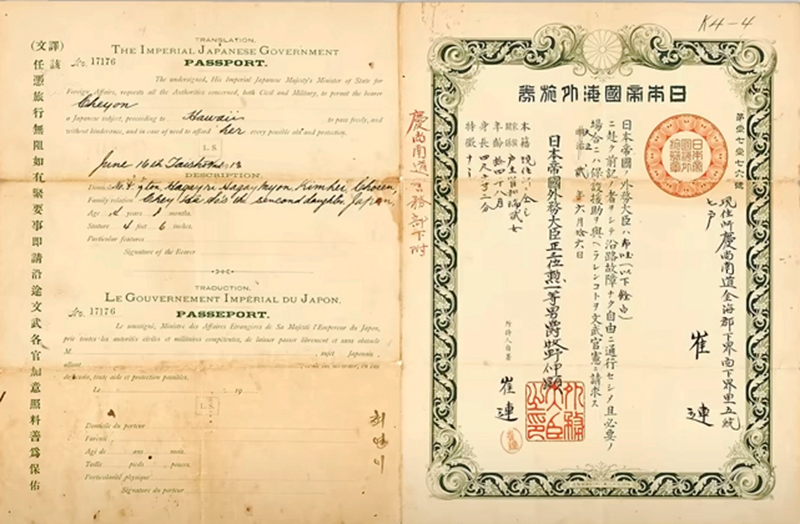 TRANSLATION.
THE IMPERIAL JAPANESE GOVERNMENT
PASSPORT.
No. 17176
The undersigned, His Imperial Japanese Majesty's Minister of State for
Foreign Affairs, requests all the Authorities concerned, both Civil and Military, to permit the bearer
Cheyon
a Japanese subject, proceeding to Hawaii to pass freely, and
without hindrance, and in case of need to afford her every possible aid and protection.
L.S.
June 16th
DESCRIPTION.
Domicile Kimhei, Chosen,
Family relation second daughter, Japan,
Age years months.
Stature 4 feet 6 inches.
Particular features
Signature of the Bearer
TRADUCTION.
LE GOUVERNEMENT IMPÉRIAL DU JAPON.
No. 17176
PASSEPORT.
Le soussigné, Ministre des Affaires Etrangères de Sa Majesté l'Empereur du Japon,
prie toutes les autorités civiles et militaires compétentes, de laisser passer librement et sans obstacle
M. sujet Japonais
allant
toute aide et protection possibles.
Le 19
L.S.
Domicile du porteur
Parenté
Age de ans mois.
Taille pieds pouces.
Particularité physique
Signature du porteur
(譯文)
該任憑旅行無阻如有緊要事即請沿途文武各官加意照料善爲保佑
최
慶尚南道
K4-4
日本帝國海外旅券
第壹七壹七六號
現住所慶尚南道金海郡下界面下界里五統
七戶
崔 連
日本帝國外務大臣ハ布哇(以下餘白)
ニ赴ク前記ノ者ヲシテ沿路故障ナク自由ニ通行セシメ且必要ノ
場合ニハ保護援助ヲ與ヘラレンコトヲ文武官憲ニ請求ス
貳年六月拾六日
日本帝國外務大臣正三位勲一等男爵牧野伸顯
本籍
年齡
身長四尺
特徵ナシ
所持人自署
崔連
日本帝國海外旅券章
外務大臣之印